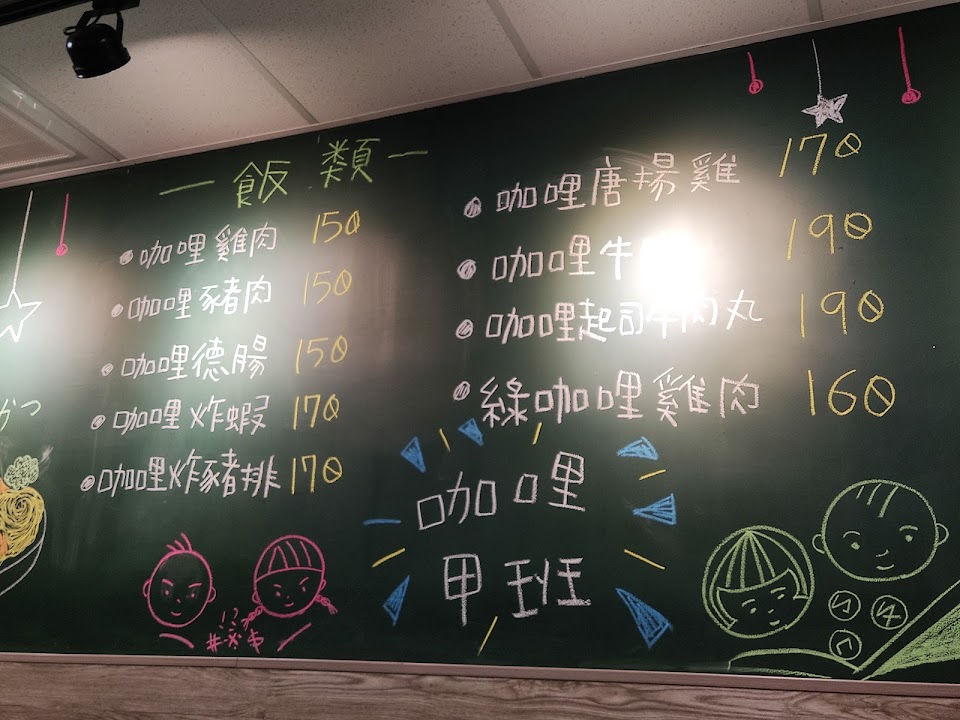 一 飯 類 一
咖哩雞肉 150
咖哩豬肉 150
咖哩德腸 150
咖哩炸蝦 170
咖哩炸豬排 170
咖哩唐揚雞 170
咖哩牛 190
咖哩起司牛肉丸 190
綠咖哩雞肉 160
咖哩
甲班
かつ